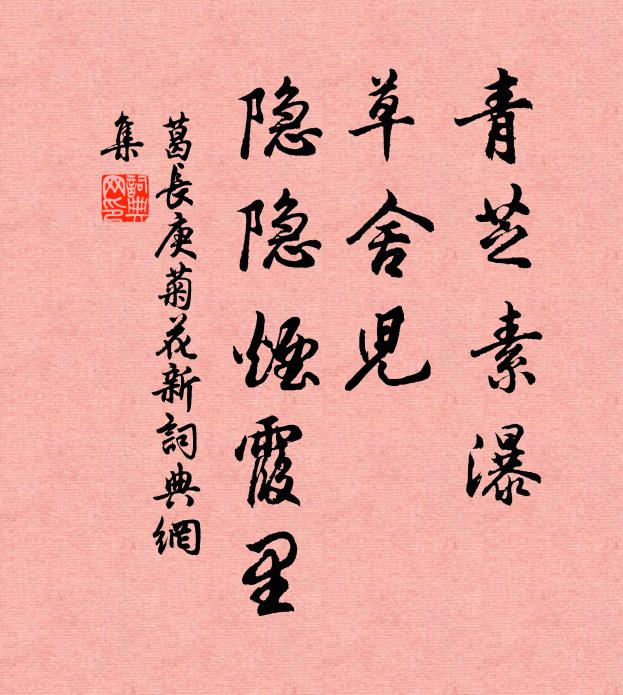 青芝素瀑
草舍児
隐隐煙霞里
葛長庚菊花新詞典網
集
詞典
网印